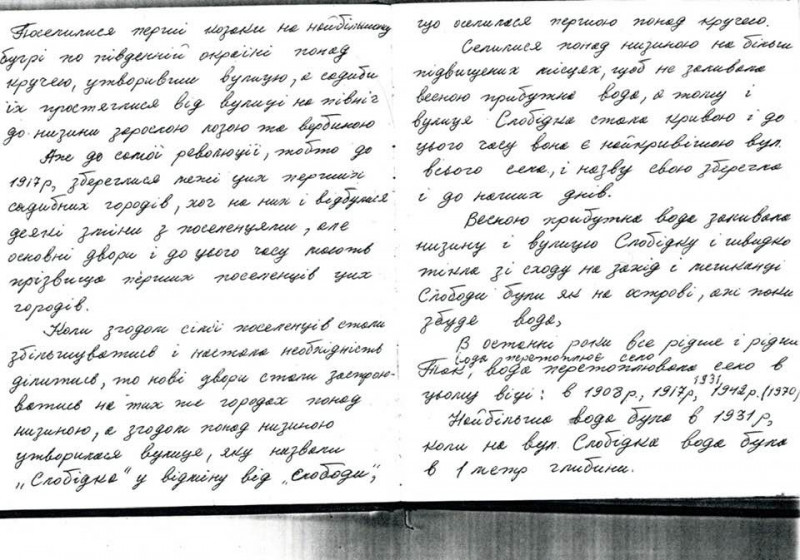 Поселилися перші козаки на найбільшому
бугрі по південній окраїні понад
кручею, утворивши вулицю, а садиби
їх простяглися від вулиці на північ
до низини зарослою лозою та вербиною
Аже до самої революції, тобто до
1917р, збереглися межі цих перших
садибних городів, хоч на них і відбулися
деякі зміни з поселенцями, але
основні двори і до цього часу мають
прізвища перших поселенців цих
городів.
Коли згодом сімї поселенців стали
збільшуватись і настала необхідність
ділитись, то нові двори стали застрою-
ватись на тих же городах понад
низиною, а згодом понад низиною
утворилася вулиця, яку назвали
„Слобідка" у відміну від „Слободи",
що оселилася першою понад кручею.
Селилися понад низиною на більш
підвищених місцях, щоб не заливала
весною прибутна вода, а тому і
вулиця Слобідка стала кривою і до
цього часу вона є найкривішою вул.
всього села, і назву свою зберегла
і до наших днів.
Весною прибутна вода заливала
низину і вулицю Слобідку і швидко
текла зі сходу на захід і мешканці
Слободи були як на острові, аж поки
збуде вода,
В останні роки все рідше і рідше
вода перетоплює село
Так, вода перетоплювала село в
цьому віці: в 1908р, 1917р, 1931 1942р. (1970)
Найбільша вода була в 1931р,
коли на вул. Слобідка вода була
в 1 метр глибини.